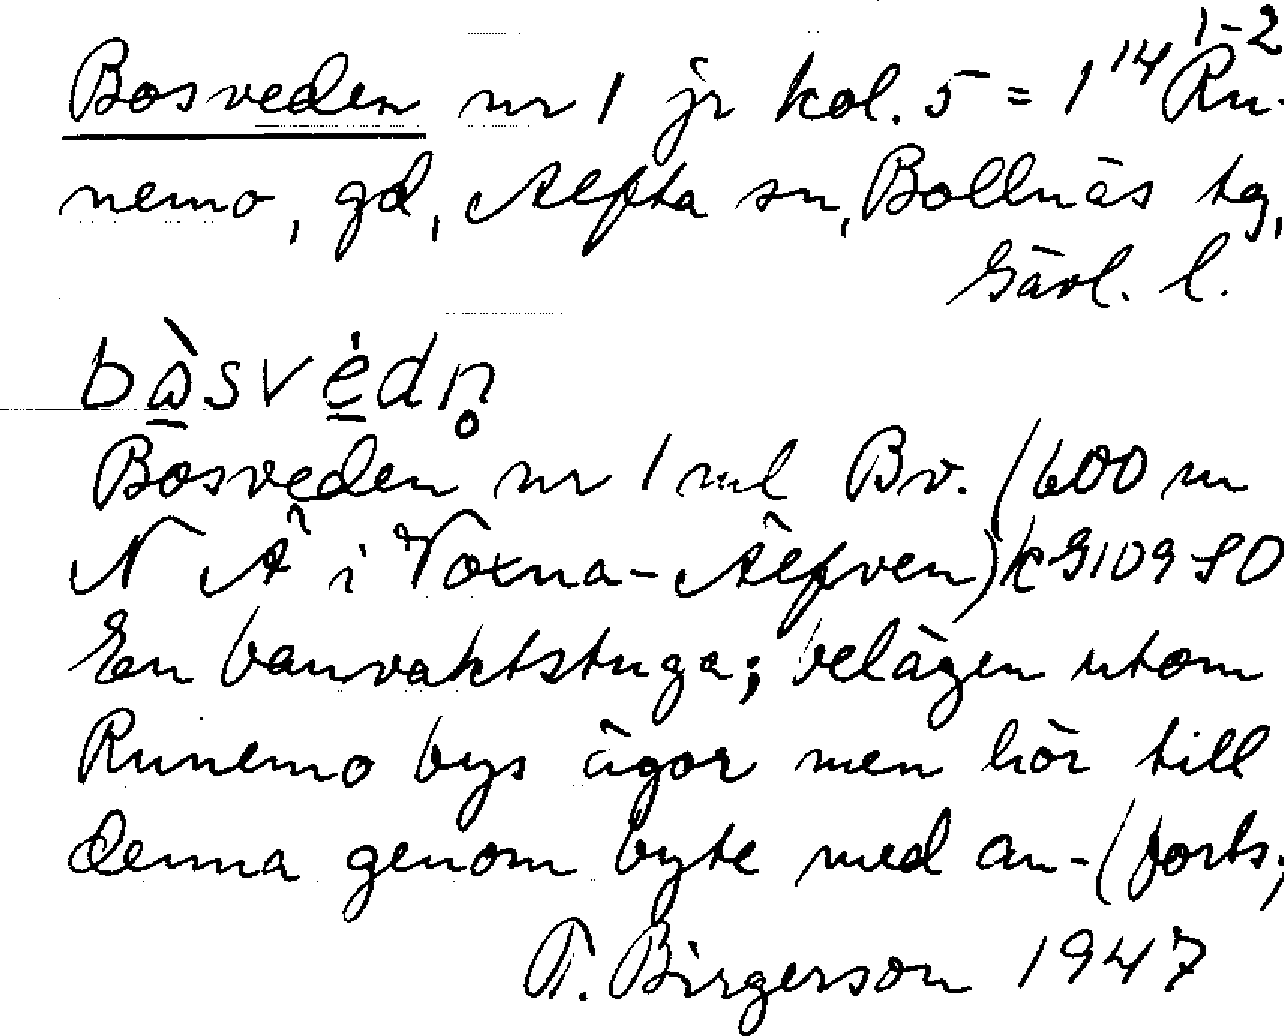 Bosveden nr 1 jr kol. 5 = 1¹⁴ ¹⁻² Ru-
nemo, gd, Alfta sn, Bollnäs tg,
Gävl. l.
Bosveden nr 1 ml Bv. (600 m
N Å i Voxna-Älfven) k G 109 SO
En banvaktstuga; belägen utom
Runemo bys ägor men hör till
denna genom byte med an- (forts;
T. Birgerson 1947